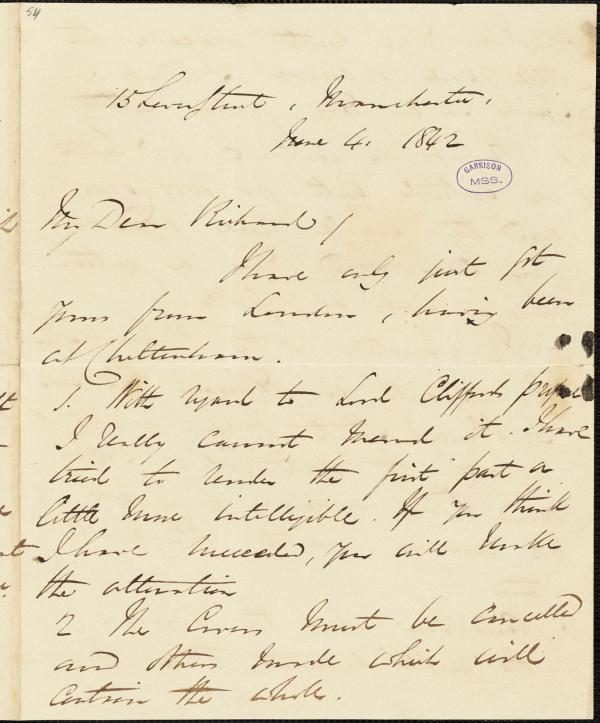 54
15 Lever Street, Manchester,
June 4. 1842
GARRISON
MSS.
My Dear Richard/
I have only just got
yours from London, having been
at Cheltenham.
1. With regard to Lord Clifford's
I really cannot mend it. I have
tried to render the first part a
little more intelligible. If you think
I have succeeded, you will make
the alteration
2 The Covers must be cancelled
and others made which will
contain the whole.